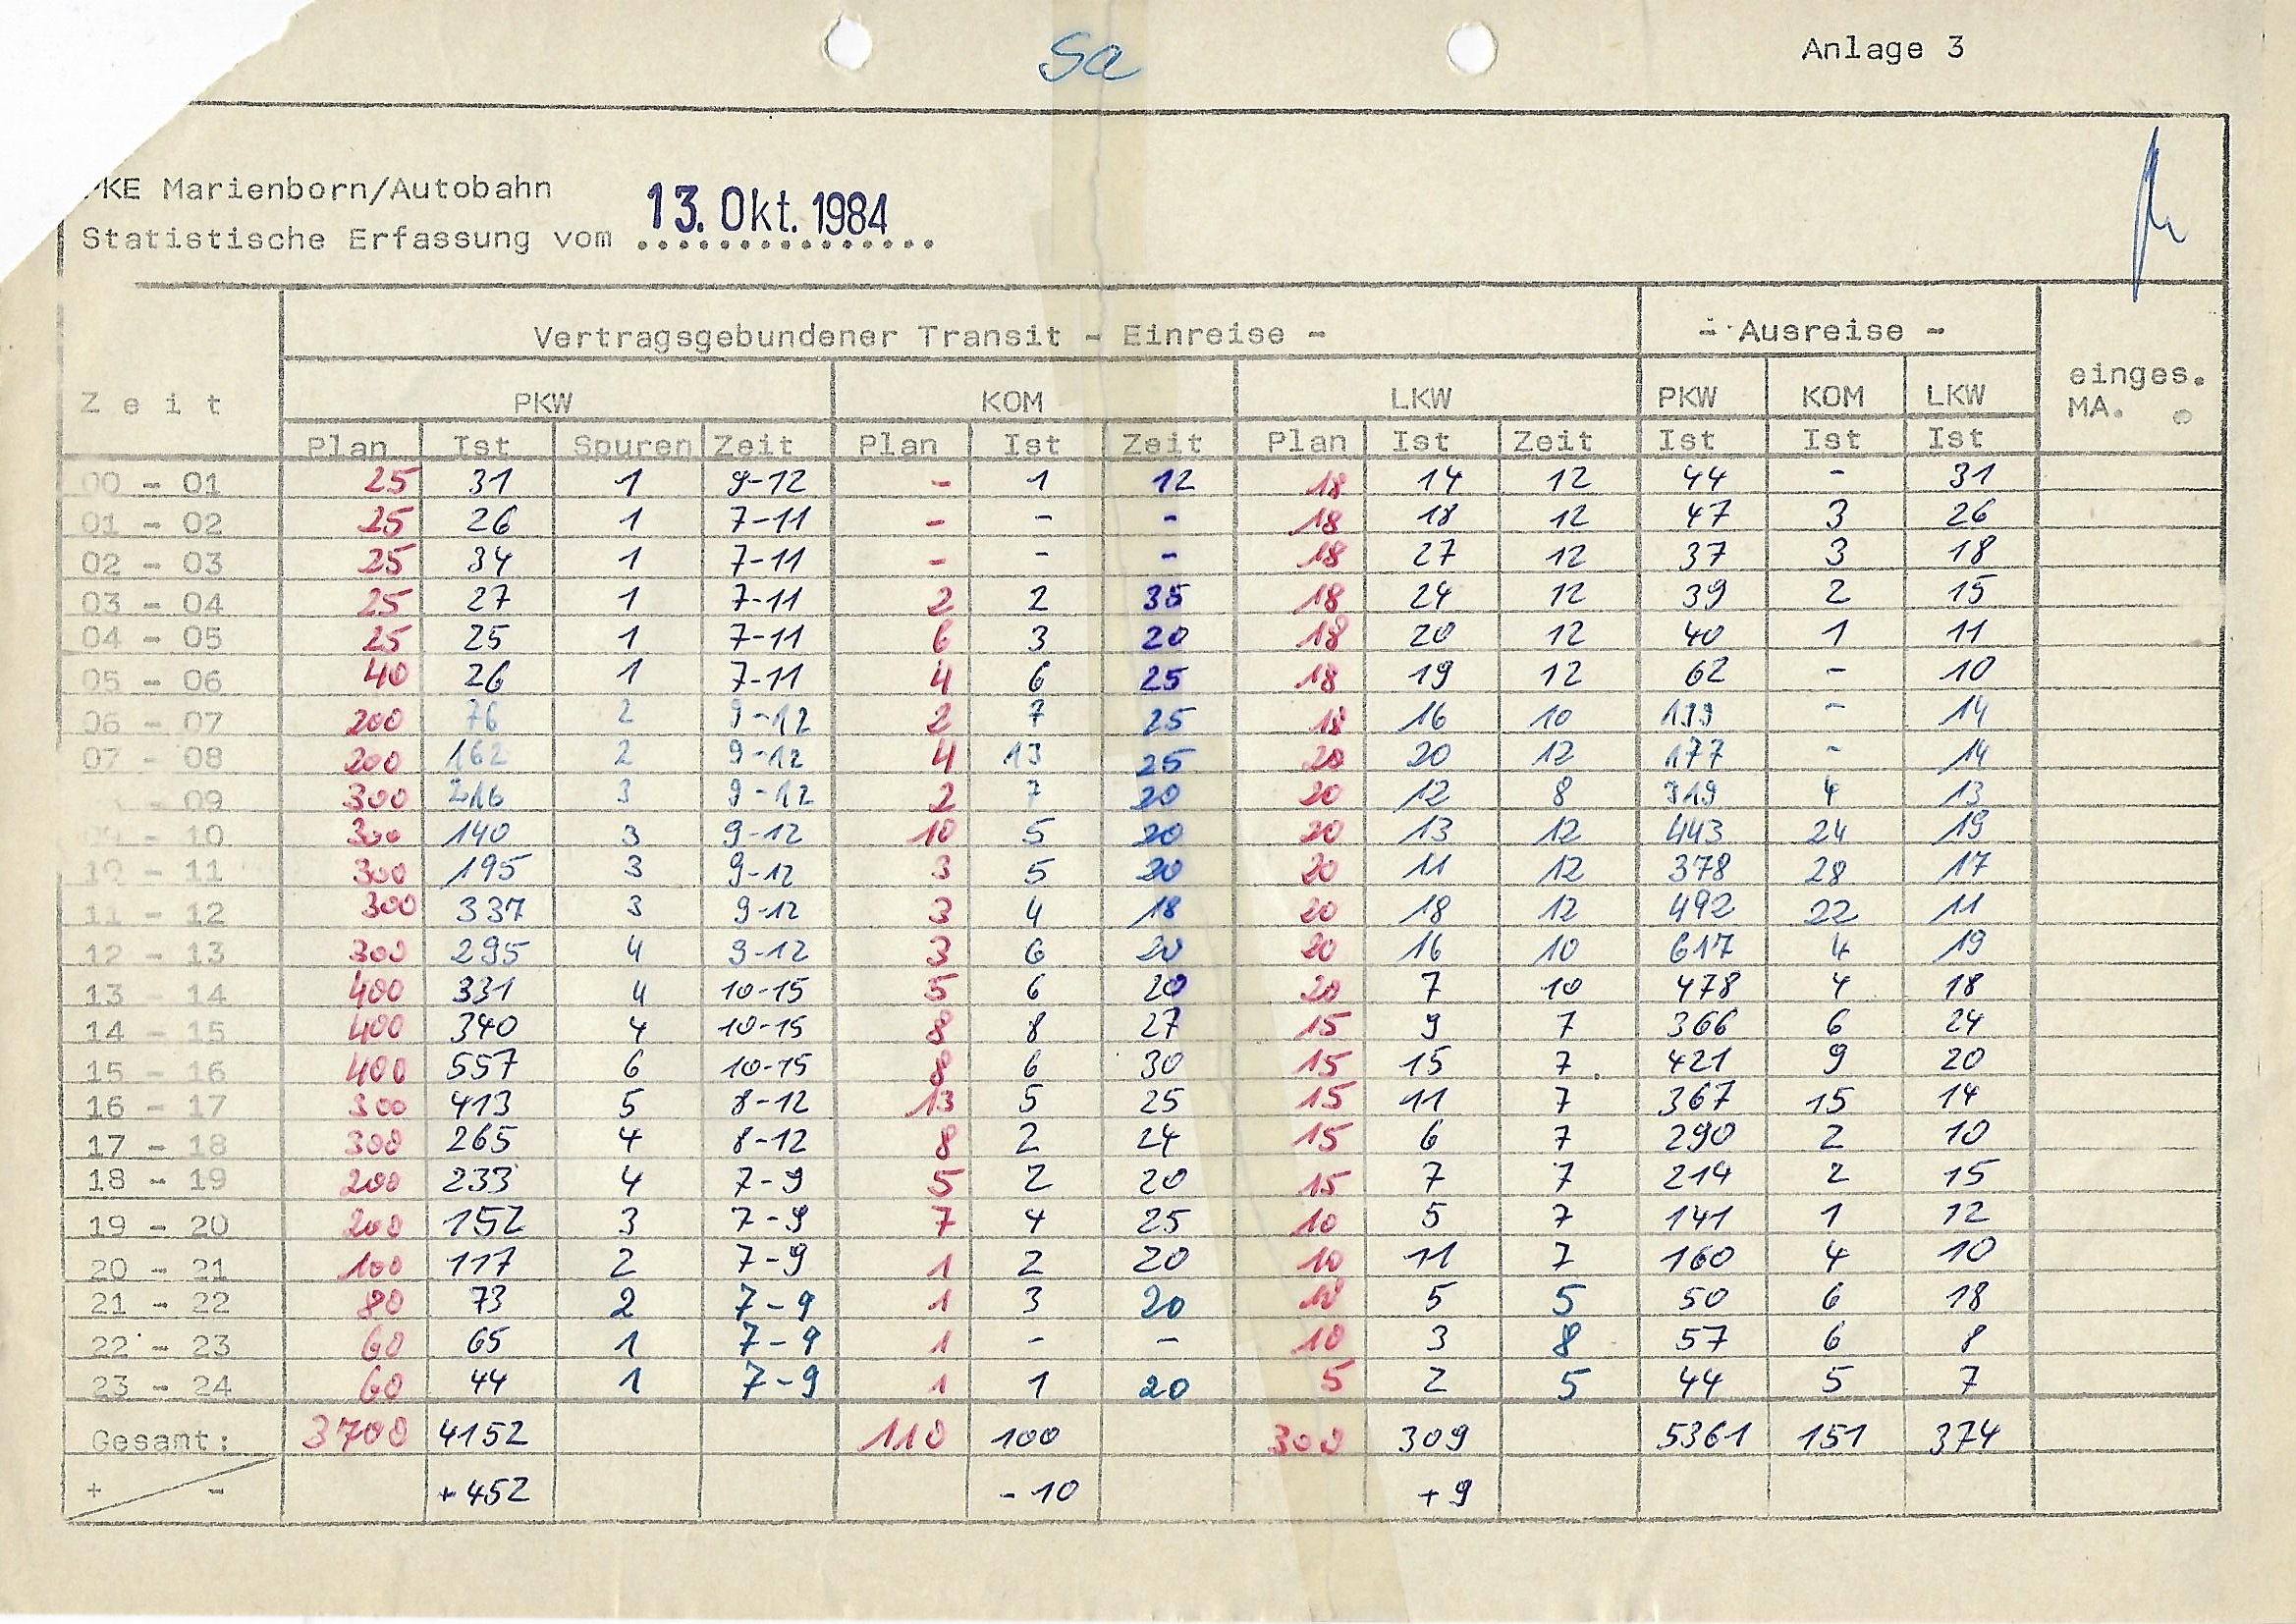 Sa
Anlage 3
PKE Marienborn/Autobahn
Statistische Erfassung vom 13. Okt. 1984
Vertragsgebundener Transit - Einreise - - Ausreise -
Zeit PKW KOM LKW PKW KOM LKW einges. MA.
Plan Ist Spuren Zeit Plan Ist Zeit Plan Ist Zeit Ist Ist Ist
00 - 01 25 31 1 9-12 - 1 12 18 14 12 44 - 31
01 - 02 25 26 1 7-11 - - - 18 18 12 47 3 26
02 - 03 25 34 1 7-11 - - - 18 27 12 37 3 18
03 - 04 25 27 1 7-11 2 2 35 18 24 12 39 2 15
04 - 05 25 25 1 7-11 6 3 20 18 20 12 40 1 11
05 - 06 40 26 1 7-11 4 6 25 18 19 12 62 - 10
06 - 07 200 76 2 9-12 2 7 25 18 16 10 - 14
07 - 08 200 162 2 9-12 4 13 25 20 20 12 177 - 14
- 09 300 216 3 9-12 2 7 20 20 12 8 319 4 13
09 - 10 300 140 3 9-12 10 5 20 20 13 12 443 24 19
10 - 11 300 195 3 9-12 3 5 20 20 11 12 378 28 17
11 - 12 300 337 3 9-12 3 4 18 20 18 12 492 22 11
12 - 13 300 295 4 9-12 3 6 20 20 16 10 617 4 19
13 - 14 400 331 4 10-15 5 6 20 20 7 10 478 4 18
14 - 15 400 340 4 10-15 8 8 27 15 9 7 366 6 24
15 - 16 400 557 6 10-15 8 6 30 15 15 7 421 9 20
16 - 17 300 413 5 8-12 13 5 25 15 11 7 367 15 14
17 - 18 300 265 4 8-12 8 2 24 15 6 7 290 2 10
18 - 19 200 233 4 7-9 5 2 20 15 7 7 214 2 15
19 - 20 200 152 3 7-9 7 4 25 10 5 7 141 1 12
20 - 21 100 117 2 7-9 1 2 20 10 11 7 160 4 10
21 - 22 80 73 2 7-9 1 3 20 10 5 5 50 6 18
22 - 23 60 65 1 7-9 1 - - 10 3 8 57 6 8
23 - 24 60 44 1 7-9 1 1 20 5 2 5 44 5 7
Gesamt: 3700 4152 110 100 300 309 5361 151 374
+ - +452 -10 +9